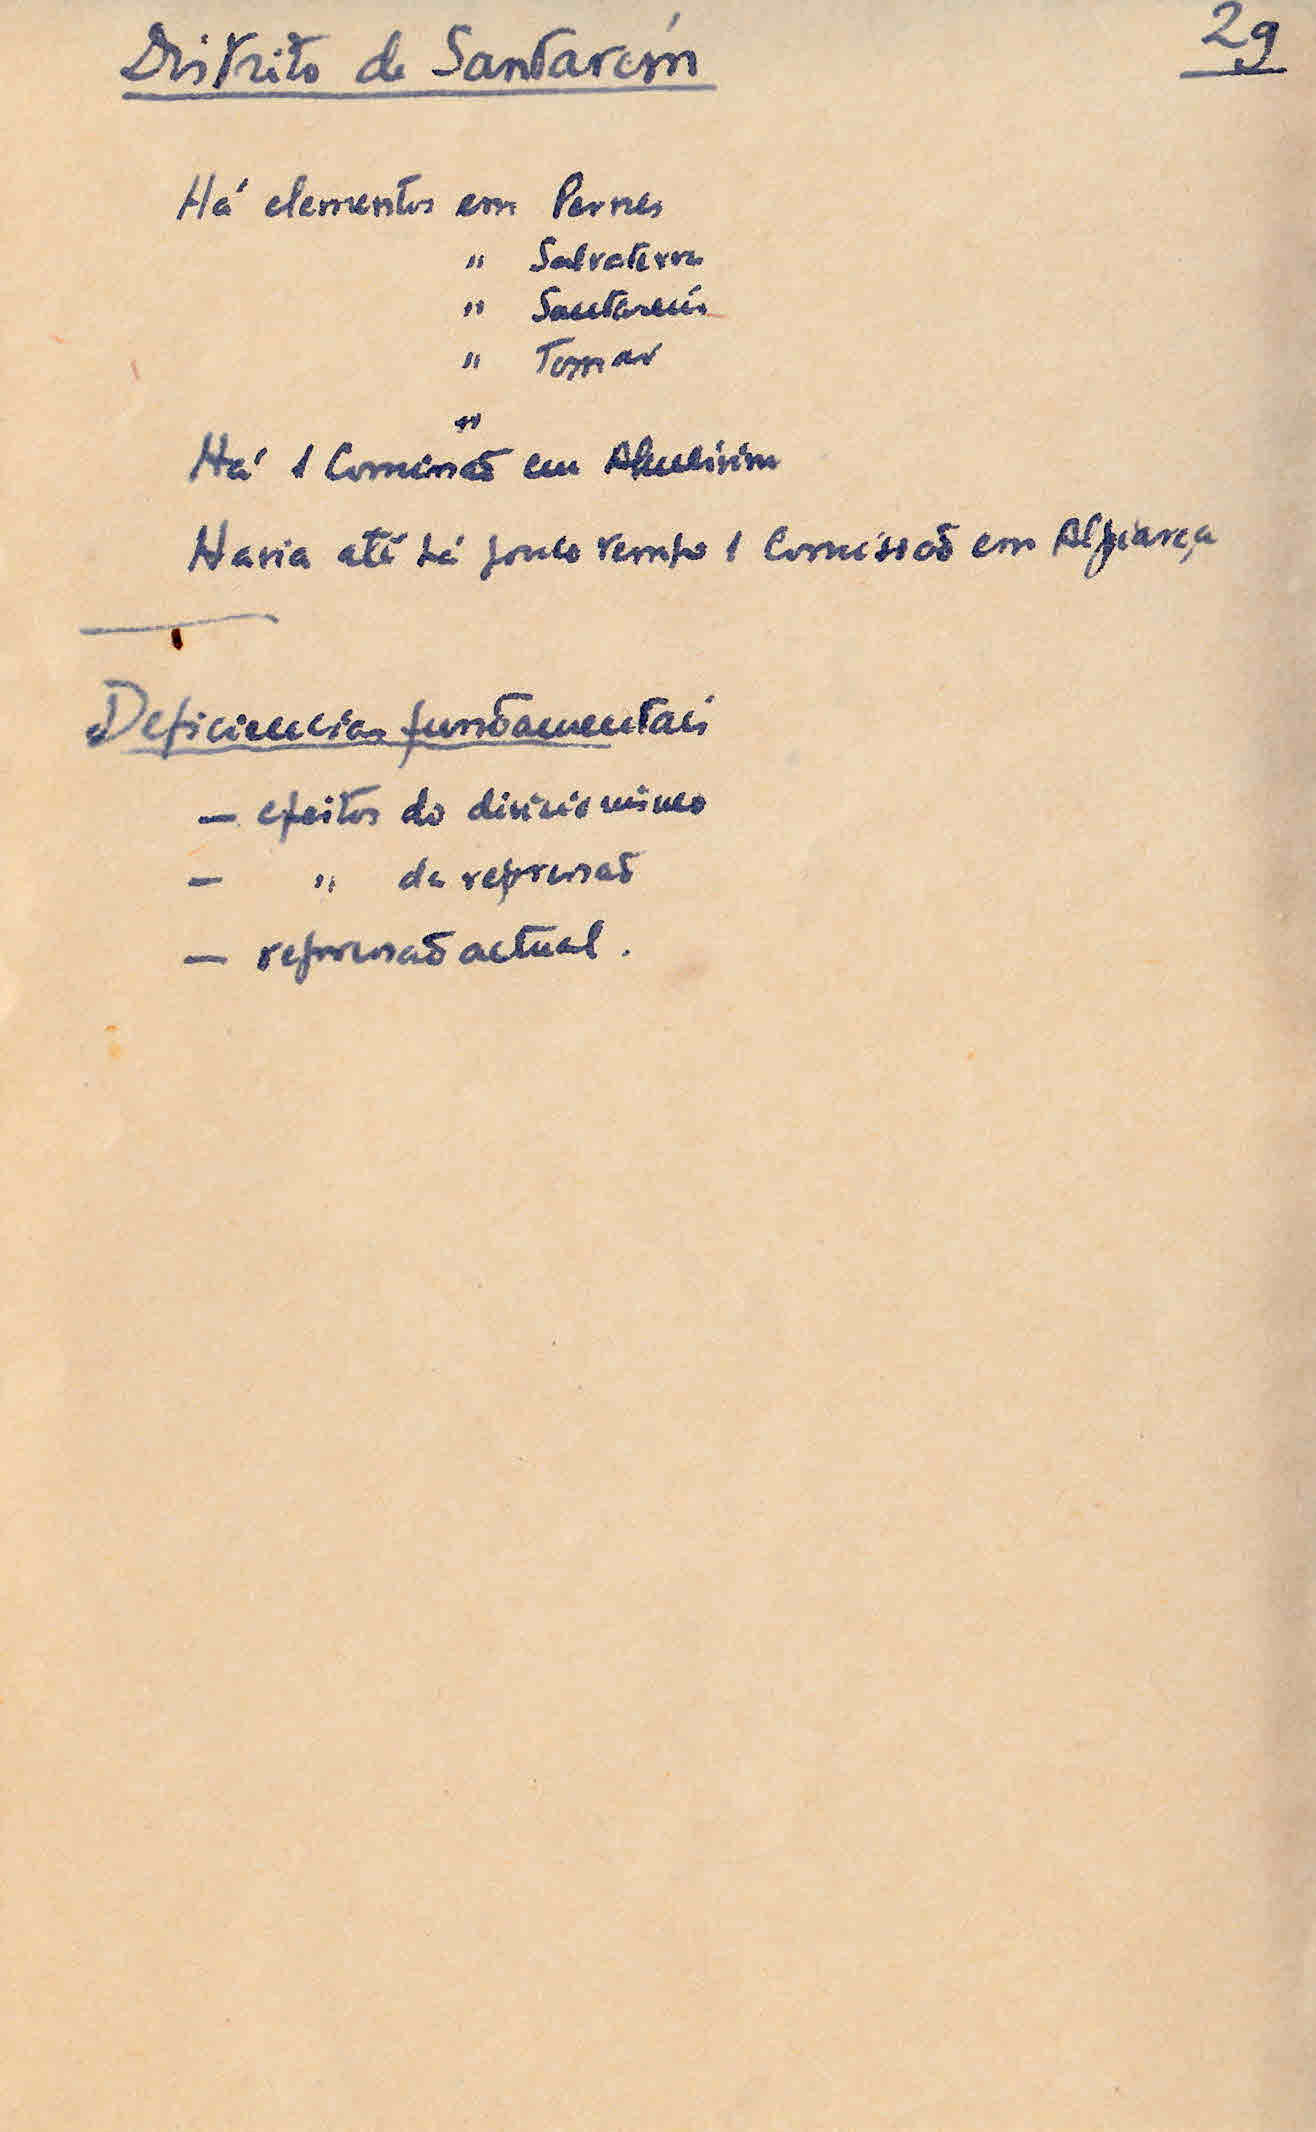 Distrito de Santarém
29
Há elementos em Pernes
" Salvaterra
" Santarém
" Tomar
"
Há 1 Comissão em Almeirim
Havia até há pouco tempo 1 Comissão em Alpiarça
Deficiencias fundamentais
— efeitos do divisionismo
— " da repressão
— repressão actual.